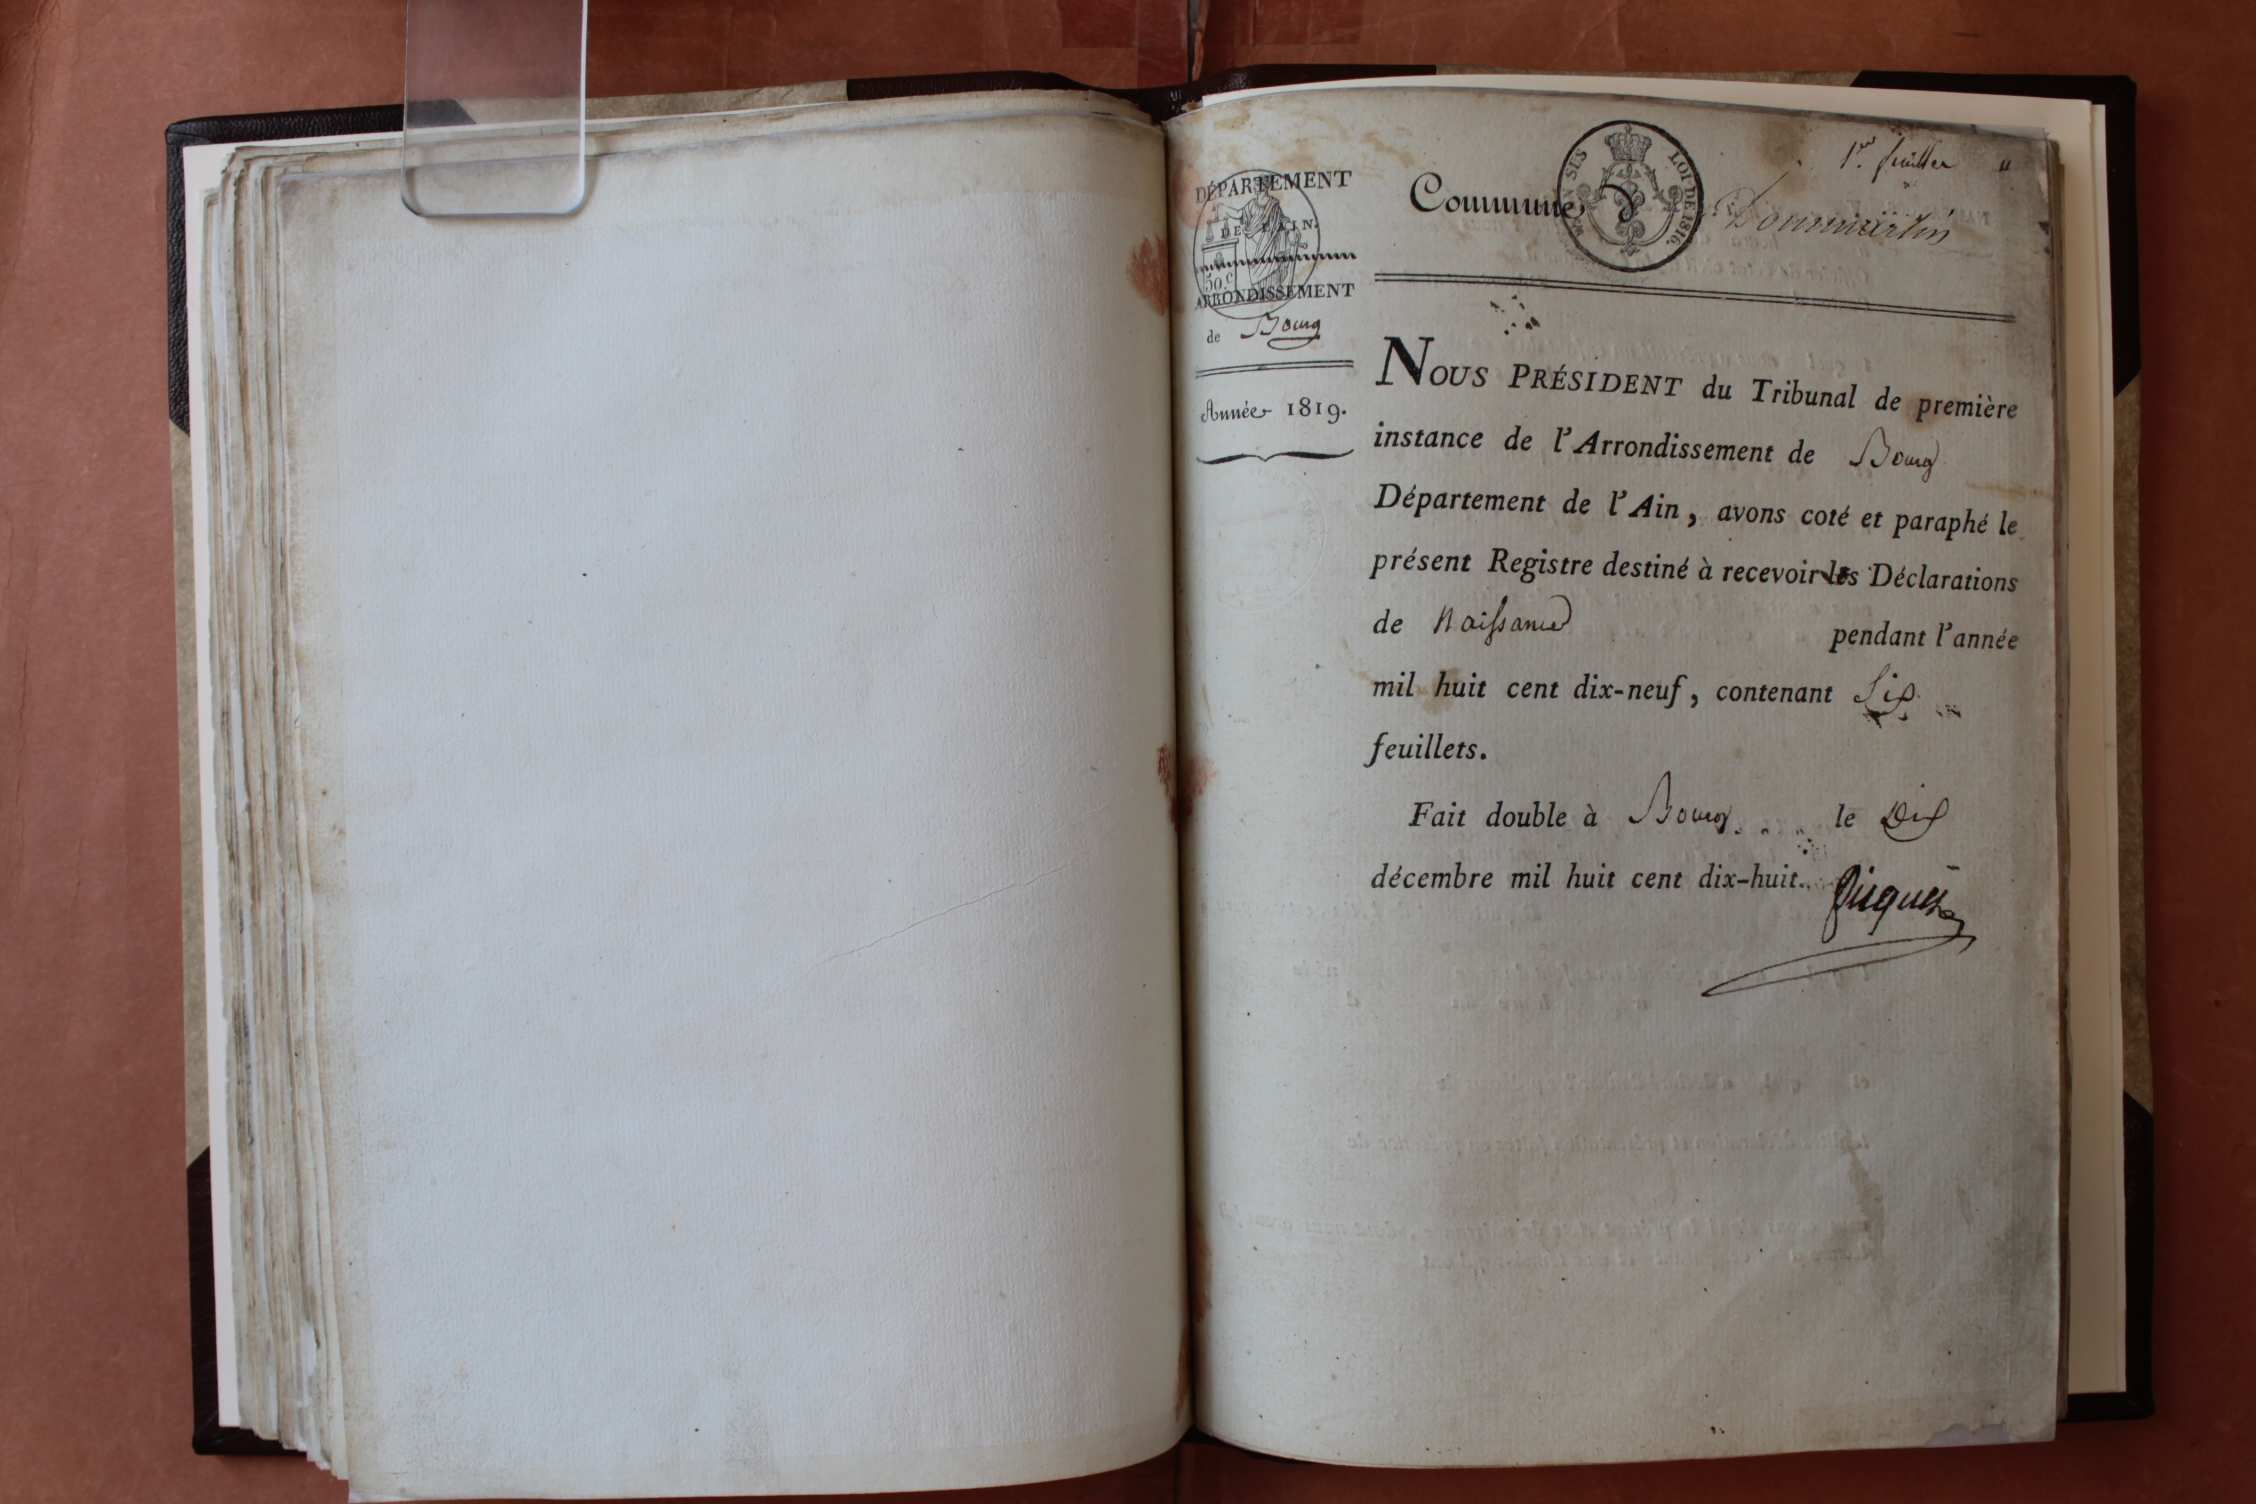 1er feuillet
DÉPARTEMENT
DE L'AIN.
50.c
ARRONDISSEMENT
de Bourg
Année 1819.
Commune de Dommartin
LOI DE 1816.
NOUS PRÉSIDENT du Tribunal de première
instance de l'Arrondissement de Bourg
Département de l'Ain, avons coté et paraphé le
présent Registre destiné à recevoir les Déclarations
de Naissance pendant l'année
mil huit cent dix-neuf, contenant Six
feuillets.
Fait double à Bourg le Dix
décembre mil huit cent dix-huit.